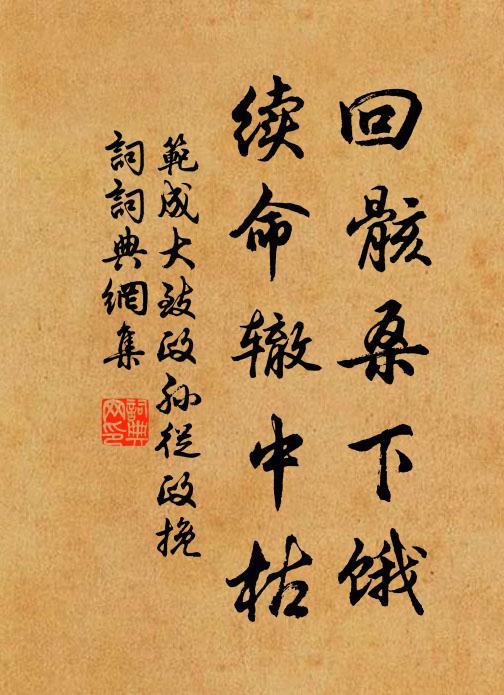 回骸桑下饿
续命辙中枯
範成大致政孙從政挽
詞詞典網集
詞典网印